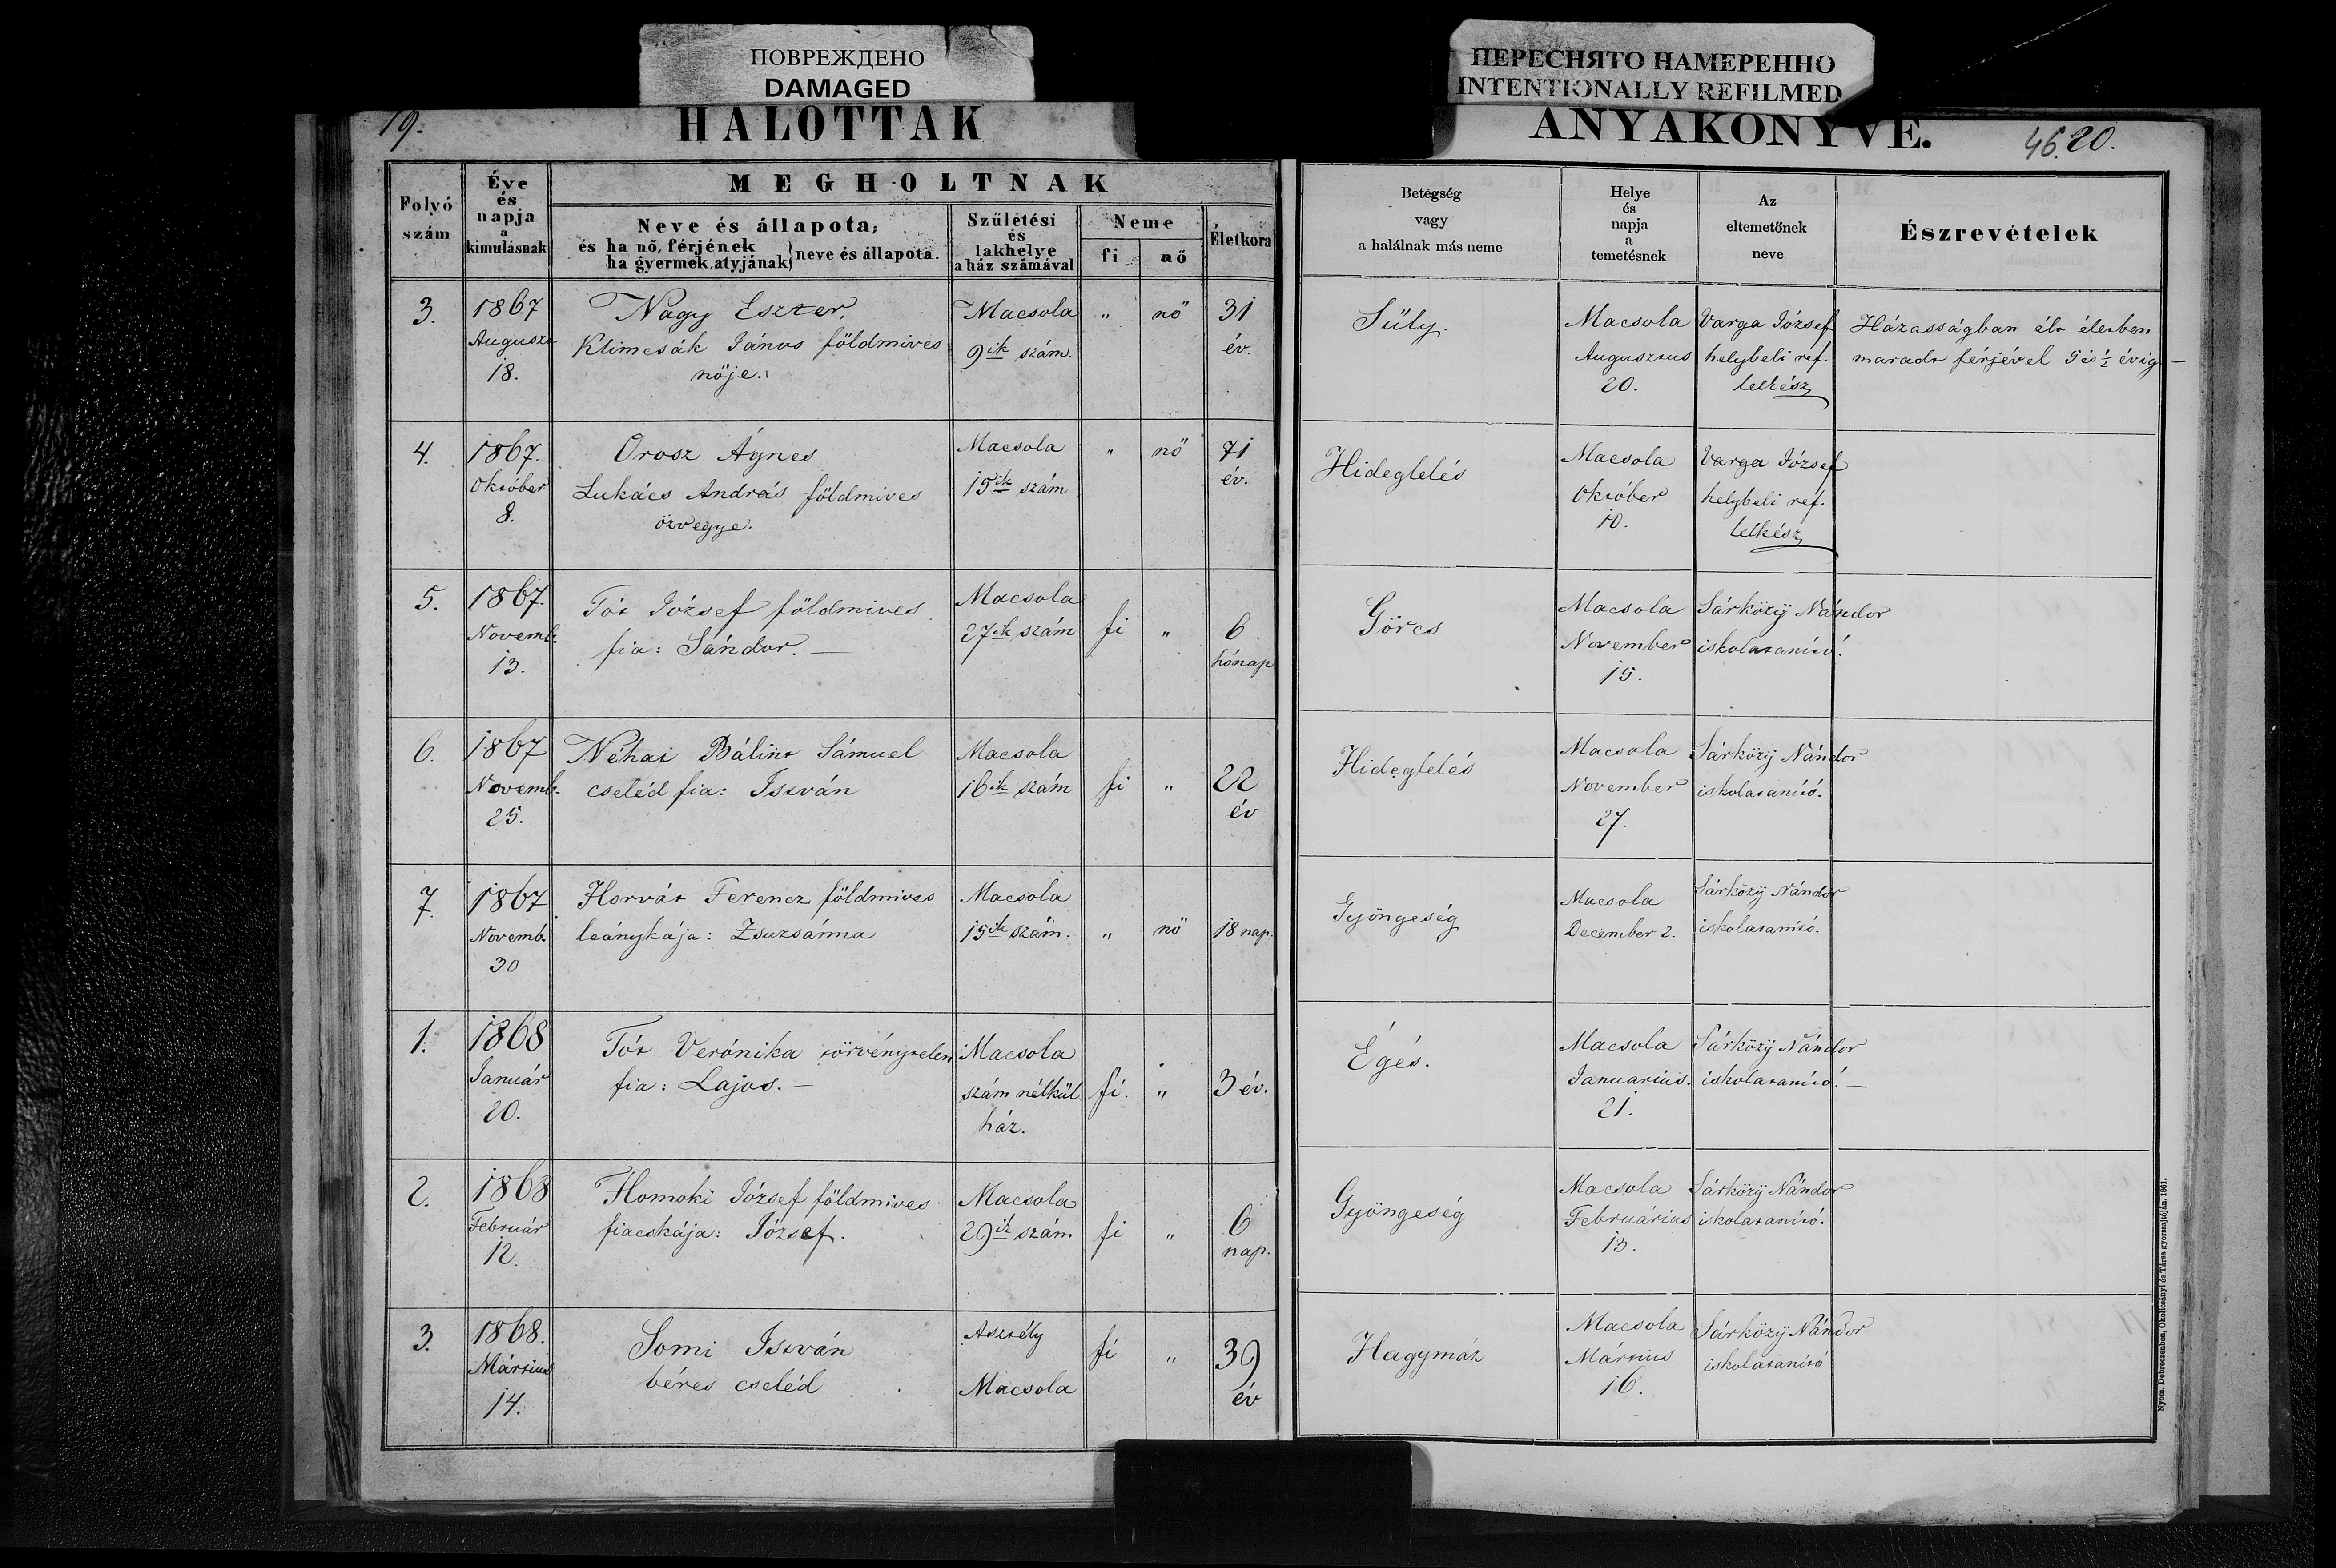 ПОВРЕЖДЕНО
DAMAGED
ПЕРЕСНЯТО НАМЕРЕННО
INTENTIONALLY REFILMED
19.
HALOTTAK
ANYAKÖNYVE.
46. 20.
Folyó szám
Éve és napja a kimulásnak
MEGHOLTNAK
Neve és állapota;
és ha nő, férjének
ha gyermek, atyjának} neve és állapota.
Születési és lakhelye a ház számával
Neme
fi
nő
Életkora
Betegség vagy a halálnak más neme
Helye és napja a temetésnek
Az eltemetőnek neve
Észrevételek
3.
1867
August
18.
Nagy Eszter,
Klimcsák János földmives
nöje.
Macsola
9ik szám.
"
nö
31
év.
Süly.
Macsola
Augusztus
20.
Varga József
helybeli ref.
lelkész
Házasságban élt életben
maradt férjével 5 és ½ évig —
4.
1867.
Október
8.
Orosz Ágnes
Lukács András földmives
özvegye.
Macsola
15ik szám
"
nö
71
év.
Hideglelés
Macsola
Október
10.
Varga József
helybeli ref.
lelkész
5.
1867.
Novemb.
13.
Tót József földmives
fia: Sándor. —
Macsola
27ik szám
fi
"
6
hónap
Görcs
Macsola
November
15.
Sárközÿ Nándor
iskolatanító.
6.
1867
Novemb.
25.
Néhai Bálint Sámuel
cseléd fia: István
Macsola
16ik szám
fi
"
22
év
Hideglelés
Macsola
November
27.
Sárközÿ Nándor
iskolatanító.
7.
1867
Novemb.
30
Horvát Ferencz földmives
leánykája: Zsuzsánna
Macsola
15ik szám.
"
nö
18 nap.
Gyöngeség
Macsola
December 2.
Sárközÿ Nándor
iskolatanító.
1.
1868
Január
20.
Tót Verónika törvénytelen
fia: Lajos. —
Macsola
szám nélkül
ház.
fi.
"
3 év.
Égés.
Macsola
Januarius.
21.
Sárközÿ Nándor
iskolatanító. —
2.
1868
Február
12.
Homoki József földmives
fiacskája: József.
Macsola
29ik szám.
fi
"
6
nap.
Gyöngeség
Macsola
Februárius
13.
Sárközÿ Nándor
iskolatanító.
3.
1868.
Mártius
14.
Somi István
béres cseléd
Asztély
Macsola
fi
"
39
év
Hagymáz
Macsola
Mártius
16.
Sárközÿ Nándor
iskolatanító
Nyom. Debreczenben, Okolicsányi és Társa gyorsajtóján. 1861.